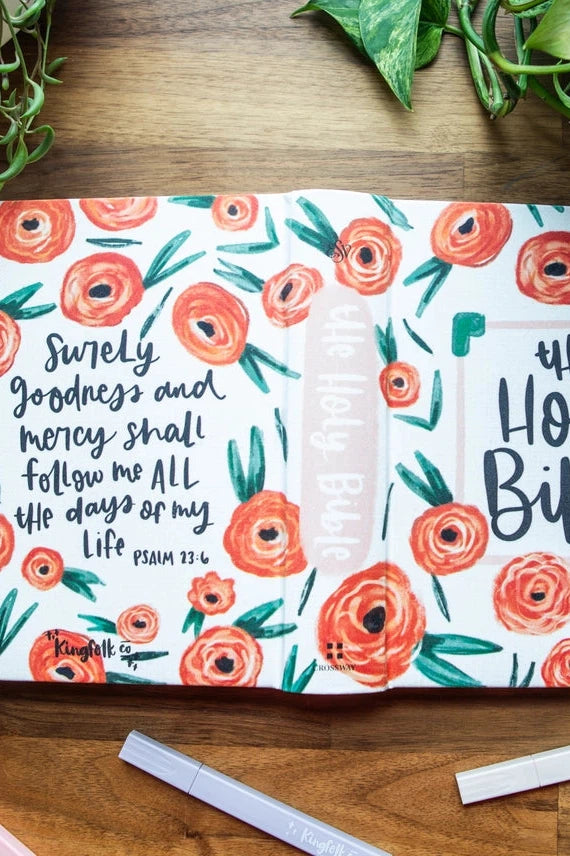 Surely
goodness and
mercy shall
follow me ALL
the days of my
Life PSALM 23:6
Kingfolk co
ESV
the Holy Bible
CROSSWAY
Kingfolk